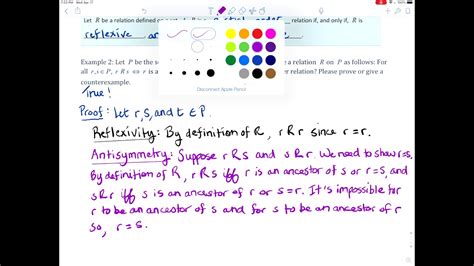 Let R be a relation defined on
relation if, and only if, R is
reflexive
Example 2: Let P be the se
e a relation R on P as follows: For
all r, s ∈ P, r R s ⇔ r is a
er relation? Please prove or give a
counterexample.
True!
Disconnect Apple Pencil
Proof: Let r, s, and t ∈ P.
Reflexivity: By definition of R, r R r since r = r.
Antisymmetry: Suppose r R s and s R r. We need to show r=s.
By definition of R, r R s iff r is an ancestor of s or r=s, and
s R r iff s is an ancestor of r or s=r. It's impossible for
r to be an ancestor of s and for s to be an ancestor of r
so, r = s.